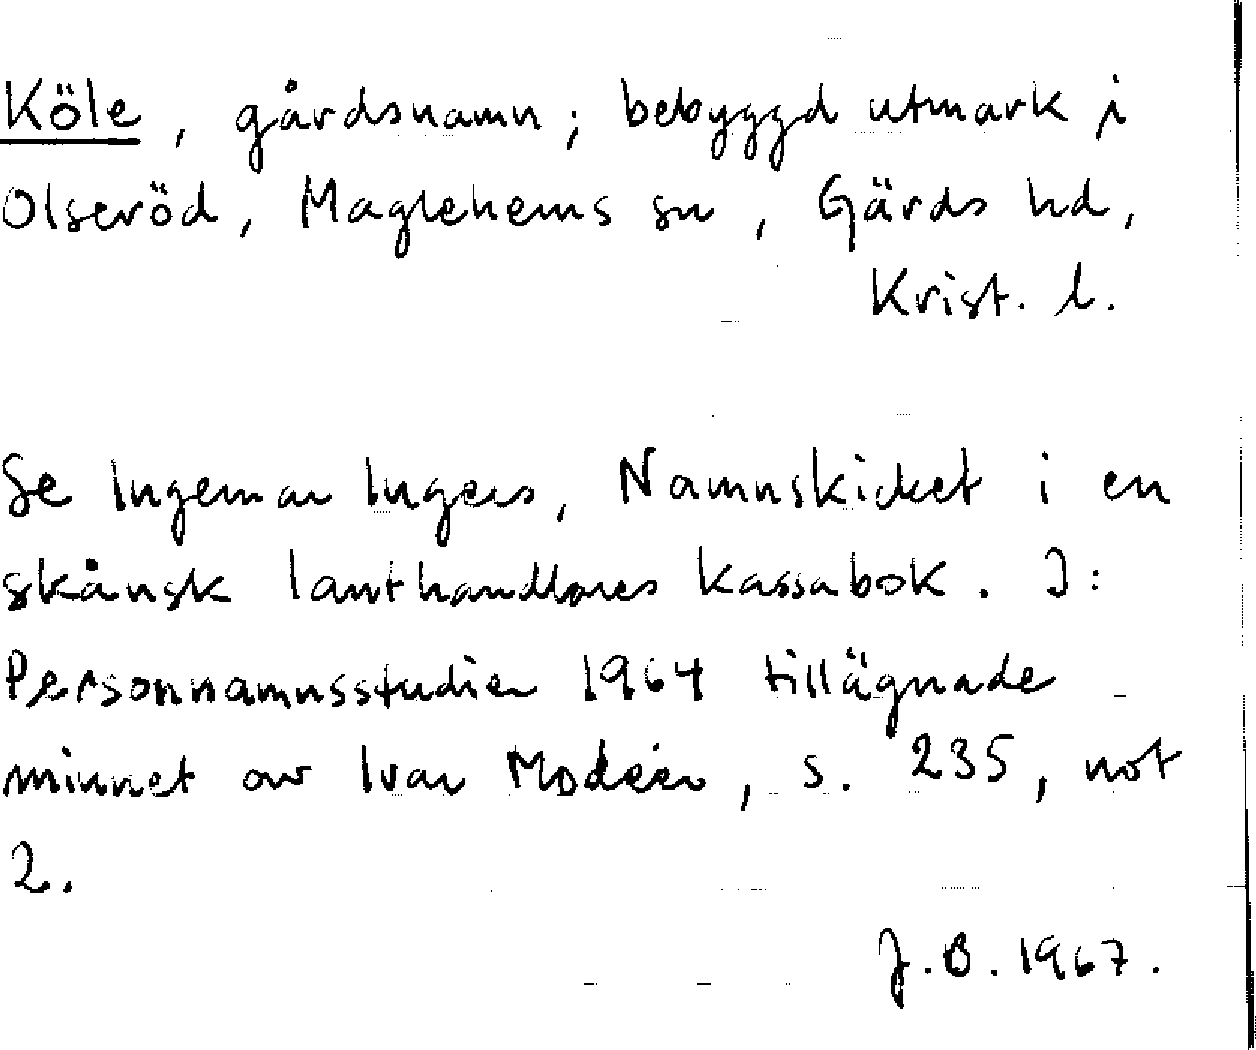 Köle, gårdsnamn; bebyggd utmark i
Olseröd, Maglehems sn, Gärds hd,
Krist. l.
Se Ingemar Ingers, Namnskicket i en
skånsk lanthandlares kassabok. I:
Personnamnsstudier 1964 tillägnade
minnet av Ivar Modéer, s. 235, not
2.
J.B. 1967.